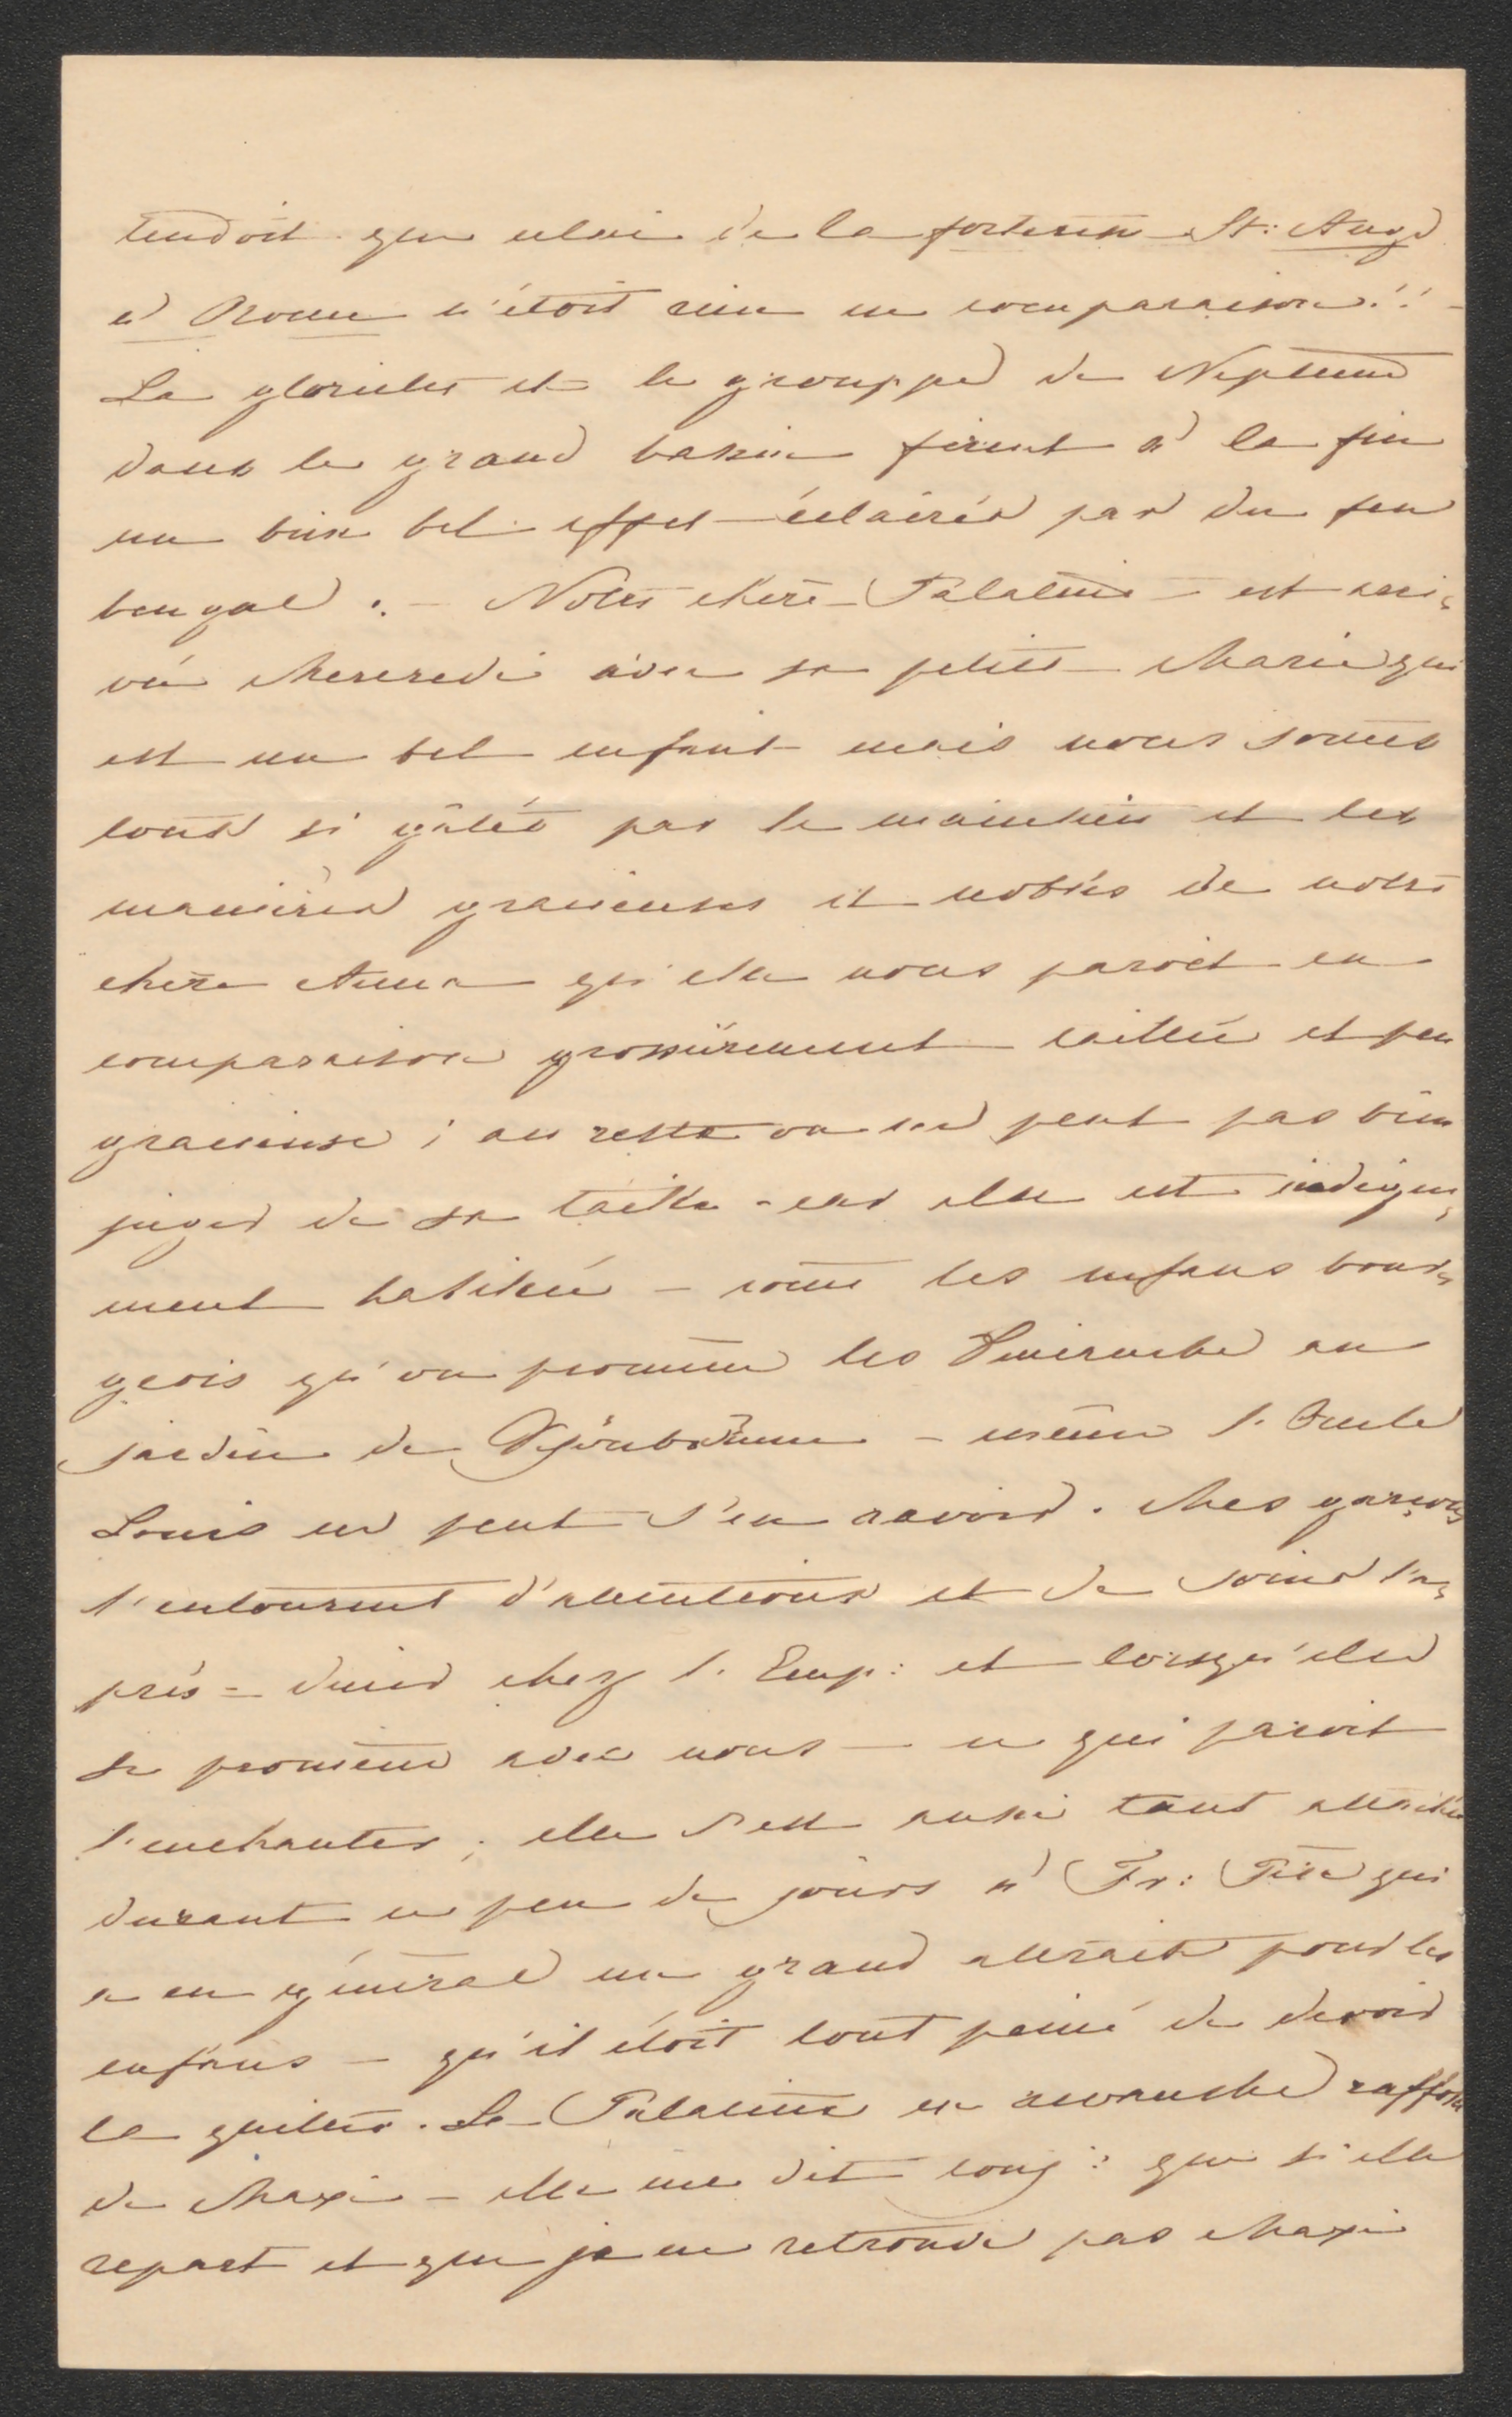 tendoit que celui de la forteresse St: Ange
à Rome n'étoit rien en comparaison!! -
La gloriette et le grouppe de Neptune
dans le grand bassin firent à la fin
un bien bel effet éclairés par du feu
bengal. - Notre chère Palatine est arri-
vée Mercredi avec sa petite Marie qui
est un bel enfant mais nous somes
tous si gâtés par le maintien et les
manières gracieuses et nobles de notre
chère Anna qu'elle nous paroit en
comparaison grossièrement taillée et peu
gracieuse; au reste on ne peut pas bien
juger de sa taille - car elle est indigne-
ment habillée - come les enfans bour-
geois qu'on promène les Dimanche au
jardin de Schönbrunn - même l'Oncle
Louis ne peut s'en ravoir. Mes garçons
l'entourent d'attentions et de soins l'a-
près-diner chez l'Emp: et lorsqu'elle
se promène avec nous - ce qui paroit
l'enchanter; elle s'est aussi tant attachée
durant ce peu de jours à Fr: qui
a en général un grand attrait pour les
enfans - qu'il étoit tout peiné de devoir
la quitter. La Palatine en revanche raffole
de Maxi - elle me dit que si elle
repart et que je ne retrouve pas Maxi